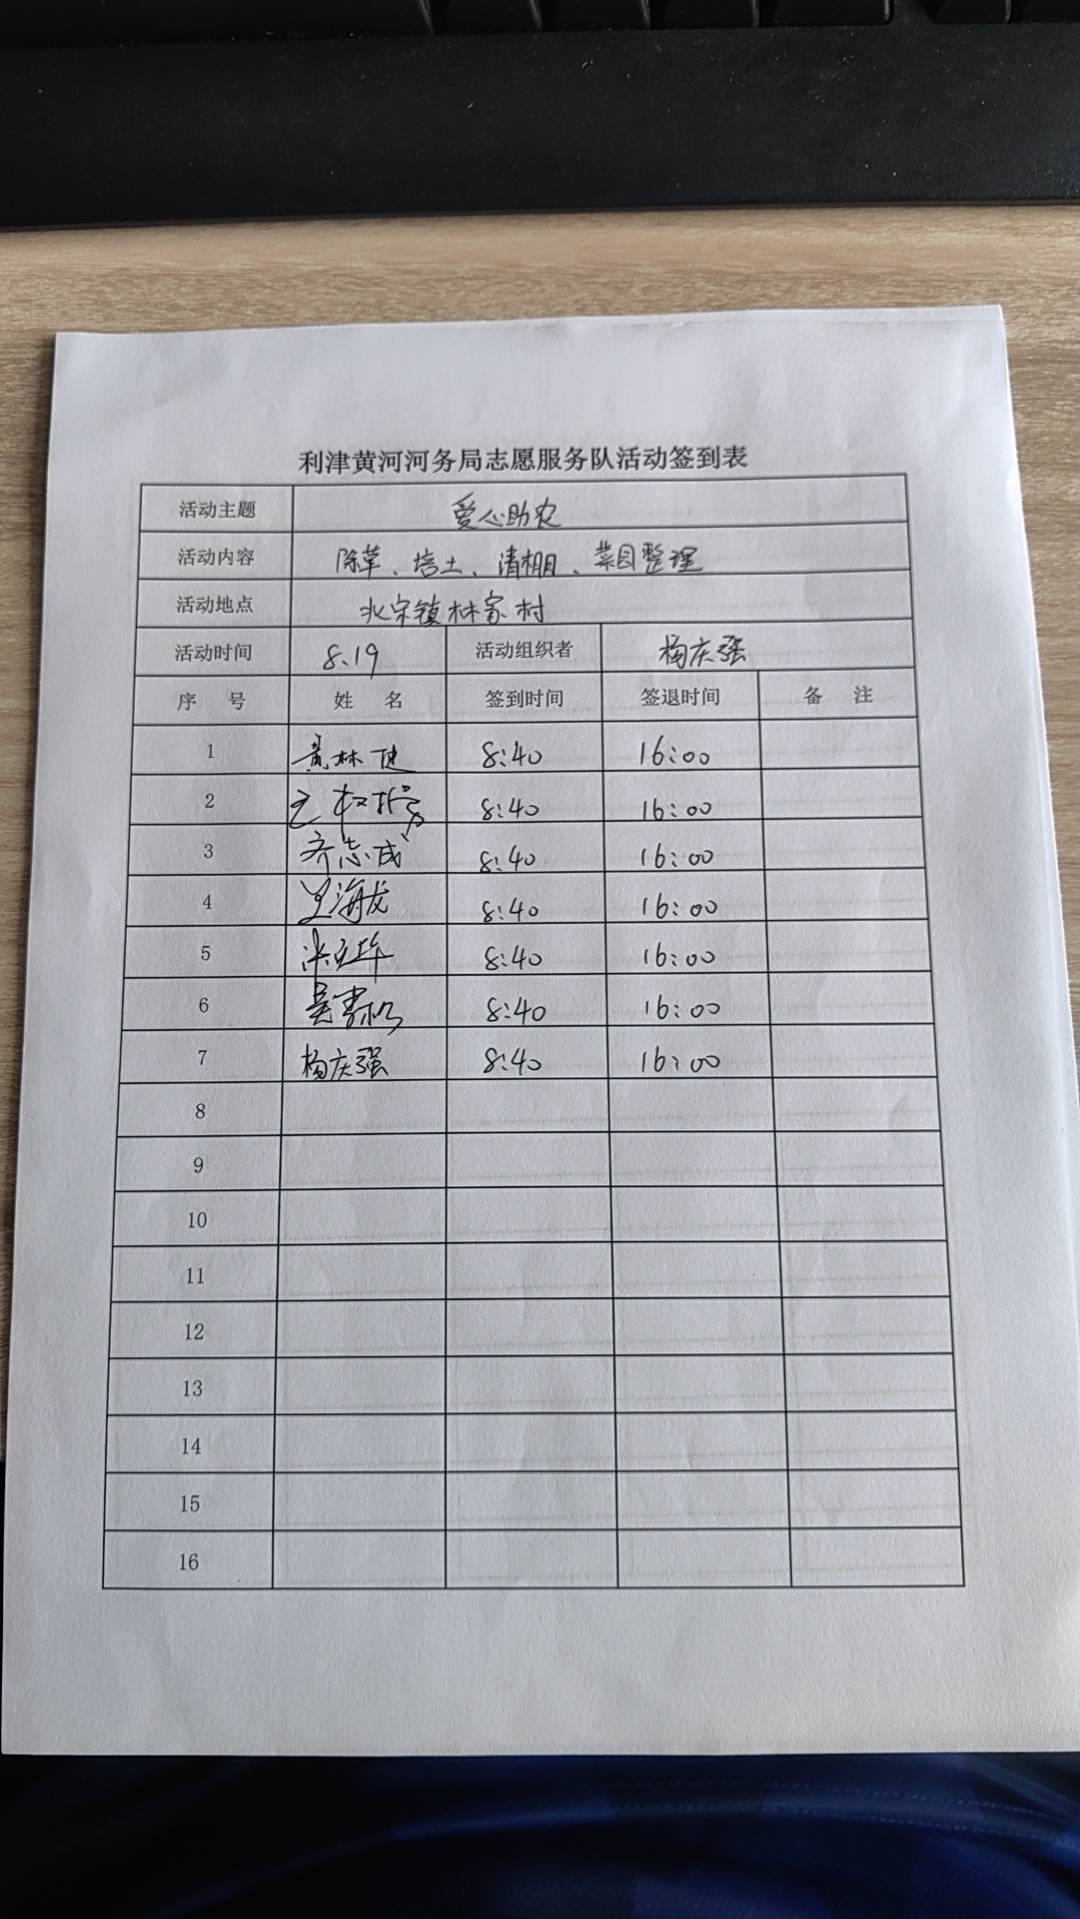 利津黄河河务局志愿服务队活动签到表
活动主题 爱心助农
活动内容 除草、培土、清棚、菜园整理
活动地点 北宋镇林家村
活动时间 8.19 活动组织者 杨庆强
序 号 姓 名 签到时间 签退时间 备 注
1 黄林健 8:40 16:00
2 8:40 16:00
3 齐志成 8:40 16:00
4 海龙 8:40 16:00
5 8:40 16:00
6 吴 8:40 16:00
7 杨庆强 8:40 16:00
8
9
10
11
12
13
14
15
16